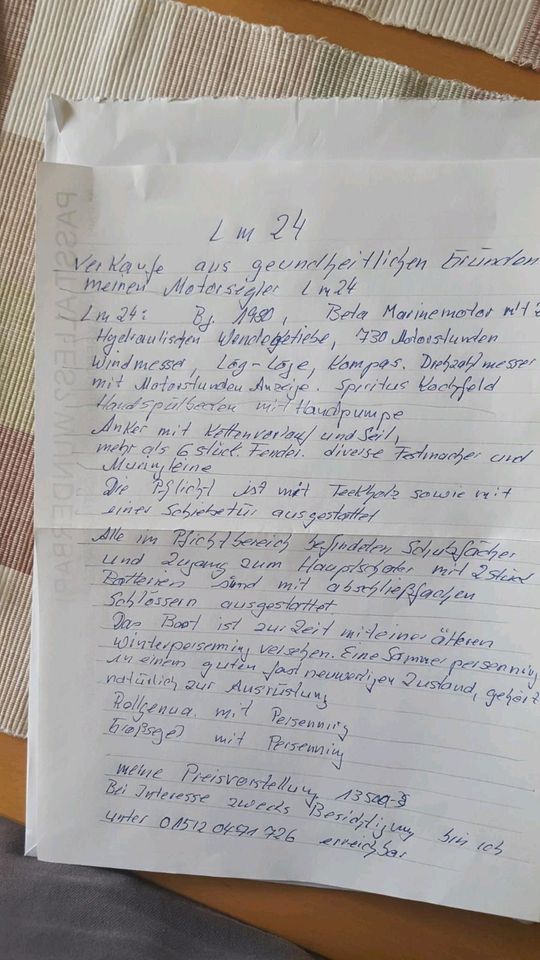 Lm 24
Verkaufe aus geundheitlichen Gründen
meinen Motorsigler Lm24
Lm 24: Bj. 1980, Beta Marinemotor mit
Hydraulischen Wendegetiebe, 730 Motorstunden
Windmesser, Log-Loge, Kompas. Drehzahlmesser
mit Motorstunden Anzeige. Spiritus Kochfeld
Handspülbecken mit Handpumpe
Anker mit Kettenvorlauf und Seil,
mehr als 6 stück Fender. diverse Festmacher und
Muringleine
Die Pflicht ist mit Teekholz sowie mit
einer Schiebetür ausgestattet
Alle im Pflichtbereich befindeten Schutzfächer
und Zugang zum Hauptschalter mit 2 stück
Batterien sind mit abschließfachen
Schlössern ausgestattet
Das Boot ist zur Zeit mit einer älteren
Winterpersenning versehen. Eine Sommerpersenning
in einem guten fast neuwertigen Zustand, gehört
natürlich zur Ausrüstung
Rollgenua mit Persenning
Großsegel mit Persenning
meine Preisvorstellung 13500,-
Bei Interesse zwecks Besichtigung bin ich
unter 01512 0491 726 erreichbar
PASST ALLES? WUNDERBAR!